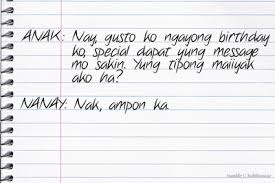 ANAK: Nay, gusto ko ngayong birthday
ko, special dapat yung message
mo sakin. Yung tipong maiiyak
ako ha?
NANAY: Nak, ampon ka.